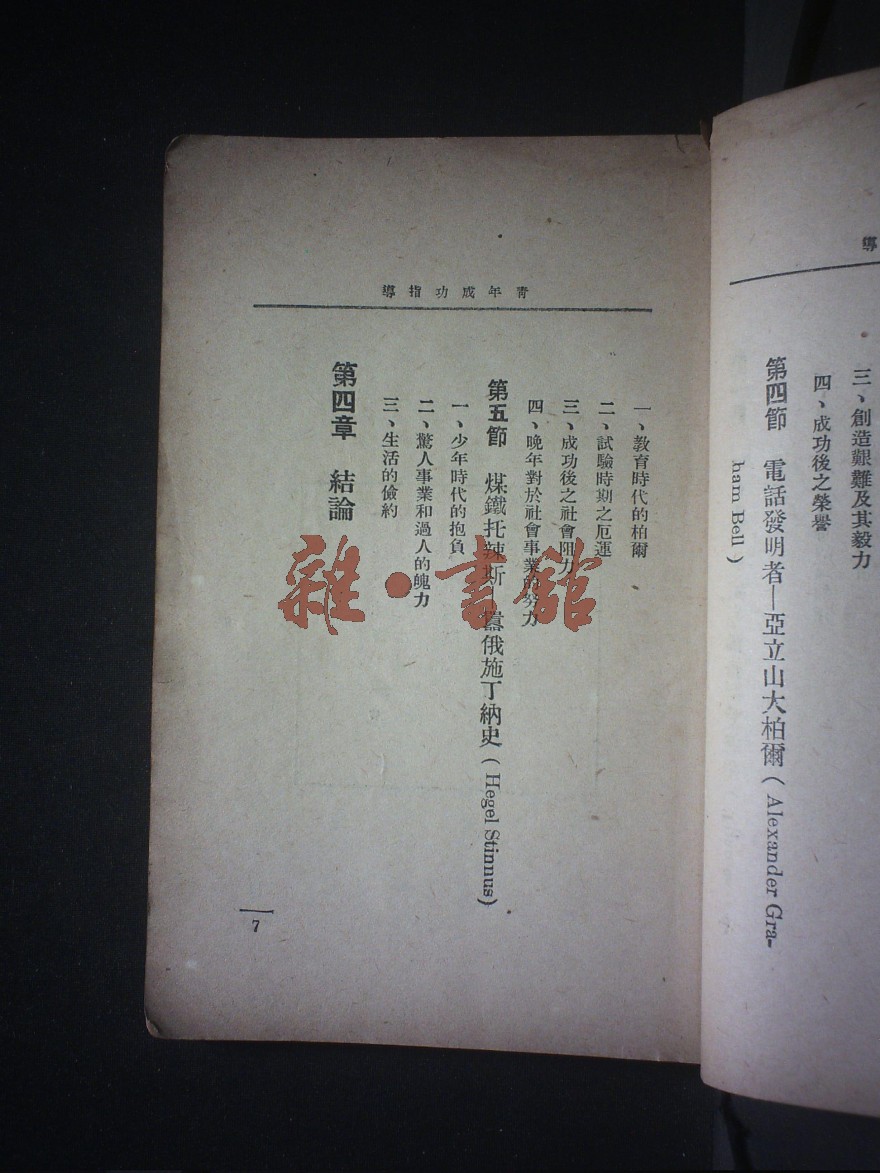 導
三、創造艱難及其毅力
四、成功後之榮譽
第四節 電話發明者—亞立山大柏爾(Alexander Gra-
ham Bell)
青年成功指導
一、教育時代的柏爾
二、試驗時期之厄運
三、成功後之社會阻力
四、晚年對於社會事業的努力
第五節 煤鐵托辣斯—囂俄施丁納史(Hegel Stinnus)
一、少年時代的抱負
二、驚人事業和過人的魄力
三、生活的儉約
第四章 結論
7
雜·書館